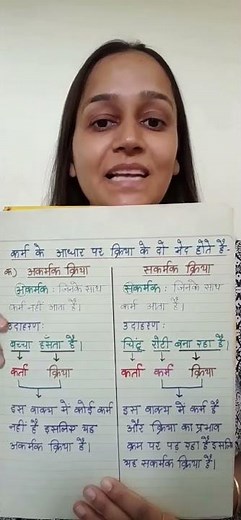 कर्म के आधार पर क्रिया के दो भेद होते हैं-
क) अकर्मक क्रिया
अकर्मक : जिनके साथ
कर्म नहीं आता है।
उदाहरण:
बच्चा हंसता है।
कर्ता क्रिया
इस वाक्य में कोई कर्म
नहीं है इसलिए यह
अकर्मक क्रिया है।
सकर्मक क्रिया
सकर्मक : जिनके साथ
कर्म आता है।
उदाहरण:
चिंटू रोटी बना रहा है।
कर्ता कर्म क्रिया
इस वाक्य में कर्म है
और क्रिया का प्रभाव
कर्म पर पड़ रहा है इसलिए
यह सकर्मक क्रिया है।